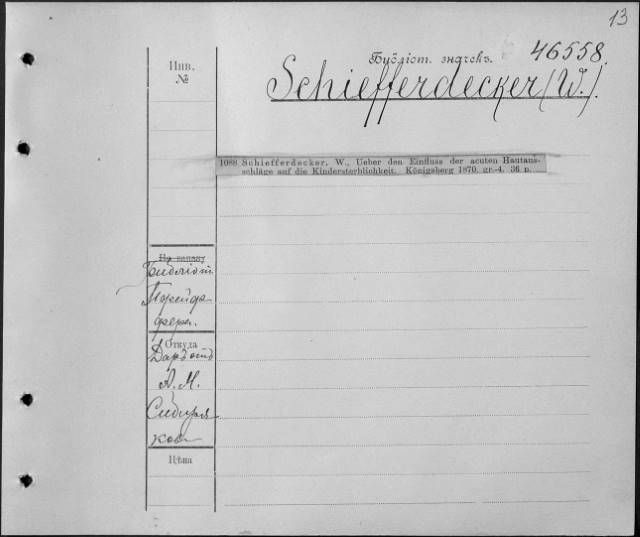 13
Библіот. значекъ.
46558.
Инв.
№
Schiefferdecker (W.).
1088 Schiefferdecker, W., Ueber den Einfluss der acuten Hautaus-
schläge auf die Kindersterblichkeit. Königsberg 1870. gr.-4. 36 p.
По каталу
Библіот.
Пфейф-
фера.
Откуда
Даръ отъ
А. М.
Сибиря-
кова
Цѣна